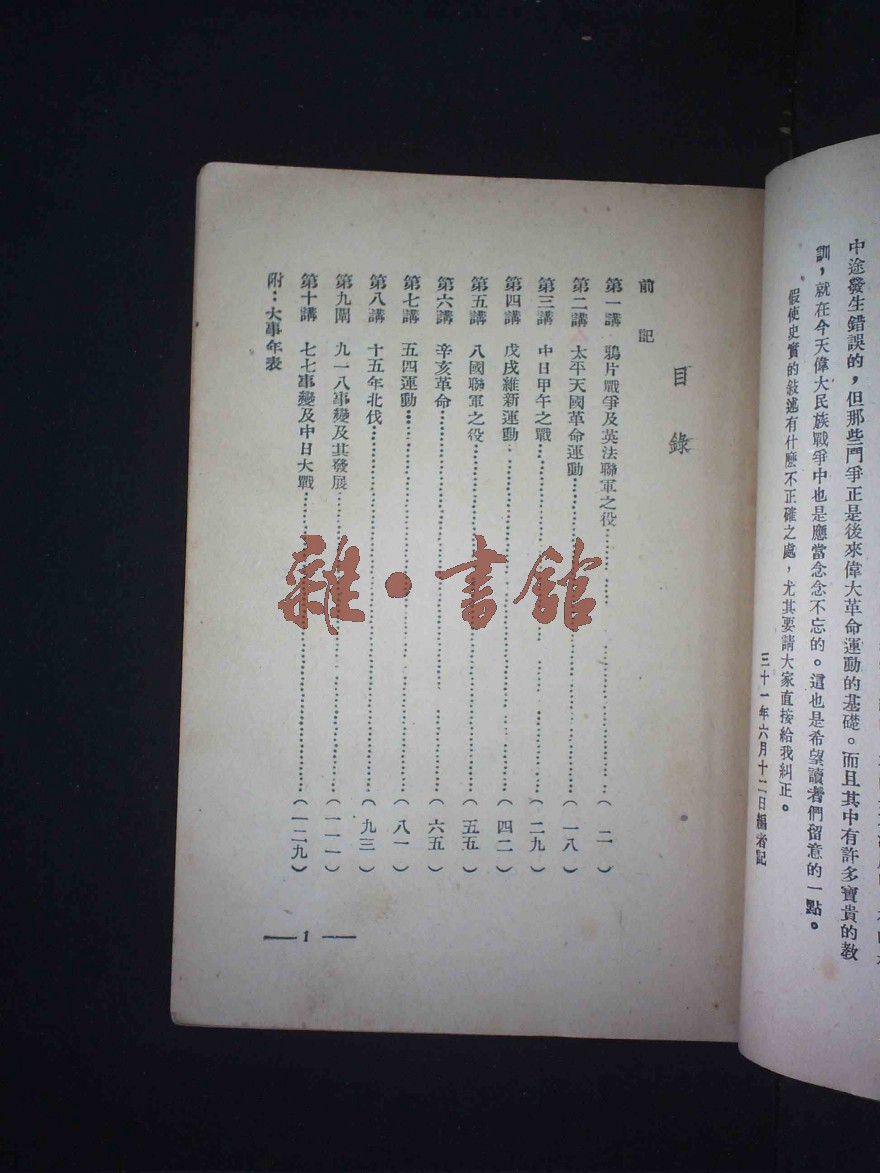 中途發生錯誤的，但那些鬥爭正是後來偉大革命運動的基礎。而且其中有許多寶貴的教
訓，就在今天偉大民族戰爭中也是應當念念不忘的。這也是希望讀者們留意的一點。
假使史實的敍述有什麼不正確之處，尤其要請大家直接給我糾正。
三十一年六月十二日編者記
目錄
前記
第一講 鴉片戰爭及英法聯軍之役……（二）
第二講 太平天國革命運動……（一八）
第三講 中日甲午之戰……（二九）
第四講 戊戌維新運動……（四二）
第五講 八國聯軍之役……（五五）
第六講 辛亥革命……（六五）
第七講 五四運動……（八一）
第八講 十五年北伐……（九三）
第九圍 九一八事變及其發展……（一一一）
第十講 七七事變及中日大戰……（一二九）
附：大事年表
— 1 —
雜·書館